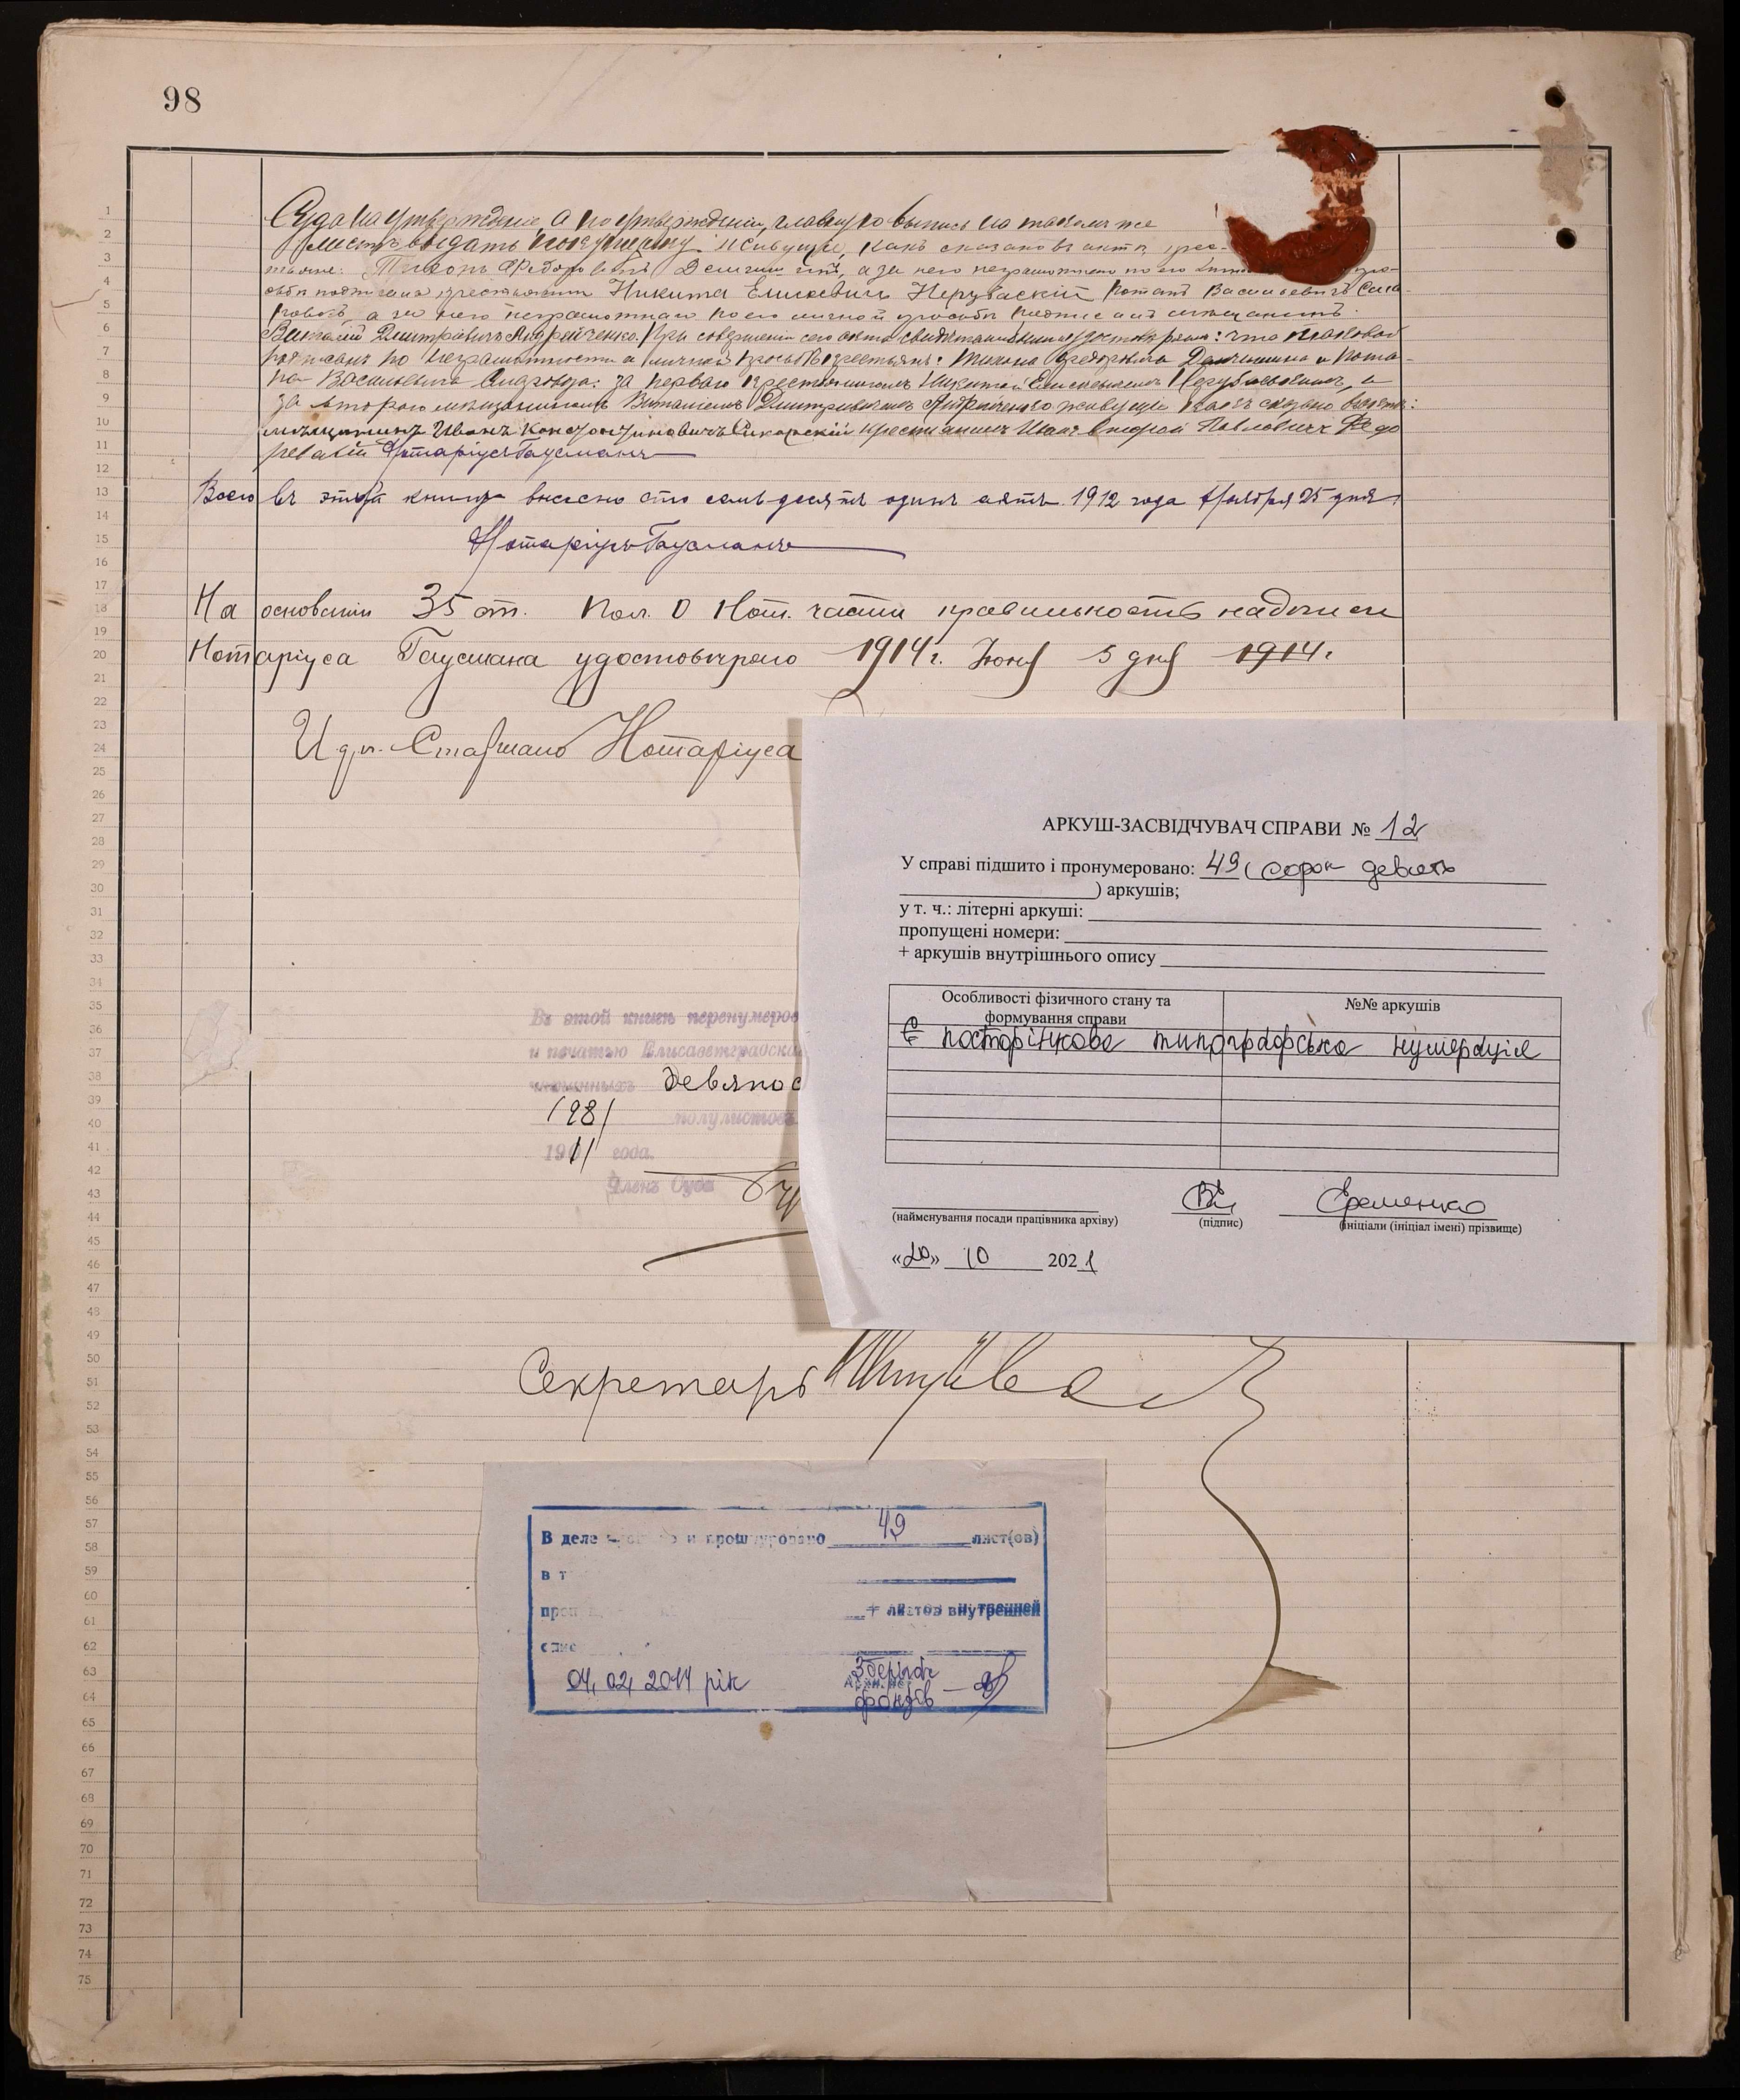 98
Суда на утвержденіе, а по утвержденіи, главную выпись на таковомъ же
листѣ выдать Живущіе, какъ сказано въ актѣ, крес-
тьяне: Тихонъ Федоровичъ а за него неграмотнаго по его
сьбѣ подписался крестьянинъ Никита Елисеевичъ Потапъ Васильевичъ
а за него неграмотнаго по его личной просьбѣ подписался мѣщанинъ
Виталій Дмитріевичъ Андрейченко. При совершеніи сего акта свидѣтелями были и удостовѣряемъ: что таковой
подписанъ по неграмотности и личной просьбѣ крестьянъ: Тихона Федоровича и Пота-
па Васильевича за перваго крестьяниномъ Никитой Елисеевичемъ и
за второго мѣщаниномъ Виталіемъ Дмитріевичемъ Андрейченко живущіе какъ сказано въ актѣ:
мѣщанинъ Иванъ Константиновичъ Сикорскій крестьянинъ Иванъ Павловичъ
Нотаріусъ Гаусманъ
Всего въ этой книгѣ внесено сто семьдесятъ одинъ актъ. 1912 года Ноября 25 дня.
Нотаріусъ Гаусманъ
На основаніи 35 ст. Пол. О Нот. части правильность надписи
Нотаріуса Гаусмана удостовѣряю 1914 г. Іюня 5 дня 1914 г.
И. д. Старшаго Нотаріуса
АРКУШ-ЗАСВІДЧУВАЧ СПРАВИ № 12
У справі підшито і пронумеровано: 49 ( сорок девять
) аркушів;
у т. ч.: літерні аркуші:
пропущені номери:
+ аркушів внутрішнього опису
Особливості фізичного стану та формування справи
№№ аркушів
Є посторінкова типографська нумерація
(найменування посади працівника архіву)
(підпис)
Єременко
(ініціали (ініціал імені) прізвище)
«20» 10 2021
Въ этой книгѣ перенумеро
и печатью Елисаветградска
девянос
/98/ полулистовъ
1911 года.
Членъ Суда
Секретарь
В деле и прошнуровано 49 лист(ов)
в т
+ листов внутренней
04.02.2014 рік
Зберігач
фондів
1
2
3
4
5
6
7
8
9
10
11
12
13
14
15
16
17
18
19
20
21
22
23
24
25
26
27
28
29
30
31
32
33
34
35
36
37
38
39
40
41
42
43
44
45
46
47
48
49
50
51
52
53
54
55
56
57
58
59
60
61
62
63
64
65
66
67
68
69
70
71
72
73
74
75